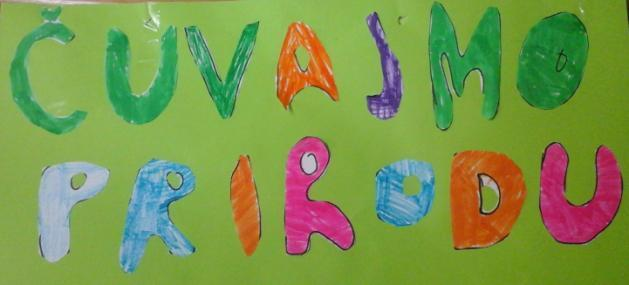 ČUVAJMO
PRIRODU